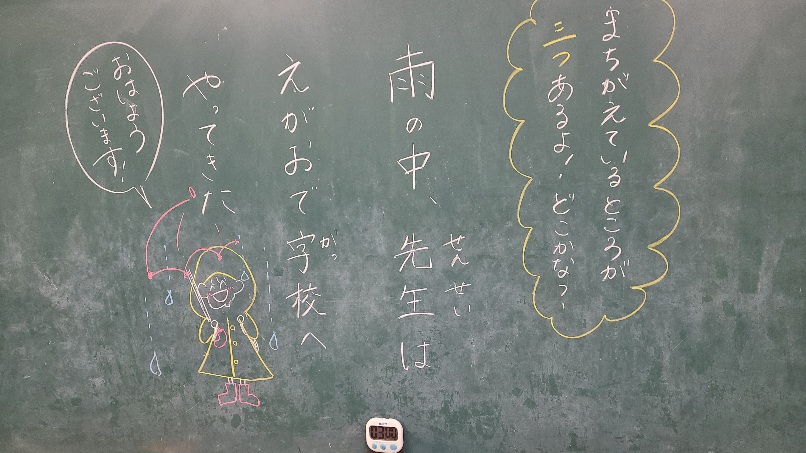 まちがえているところが
三つあるよ!どこかな~
雨の中、先生は
せんせい
えがおで字校へ
がっ
やってきた、
おはよう
ございます!